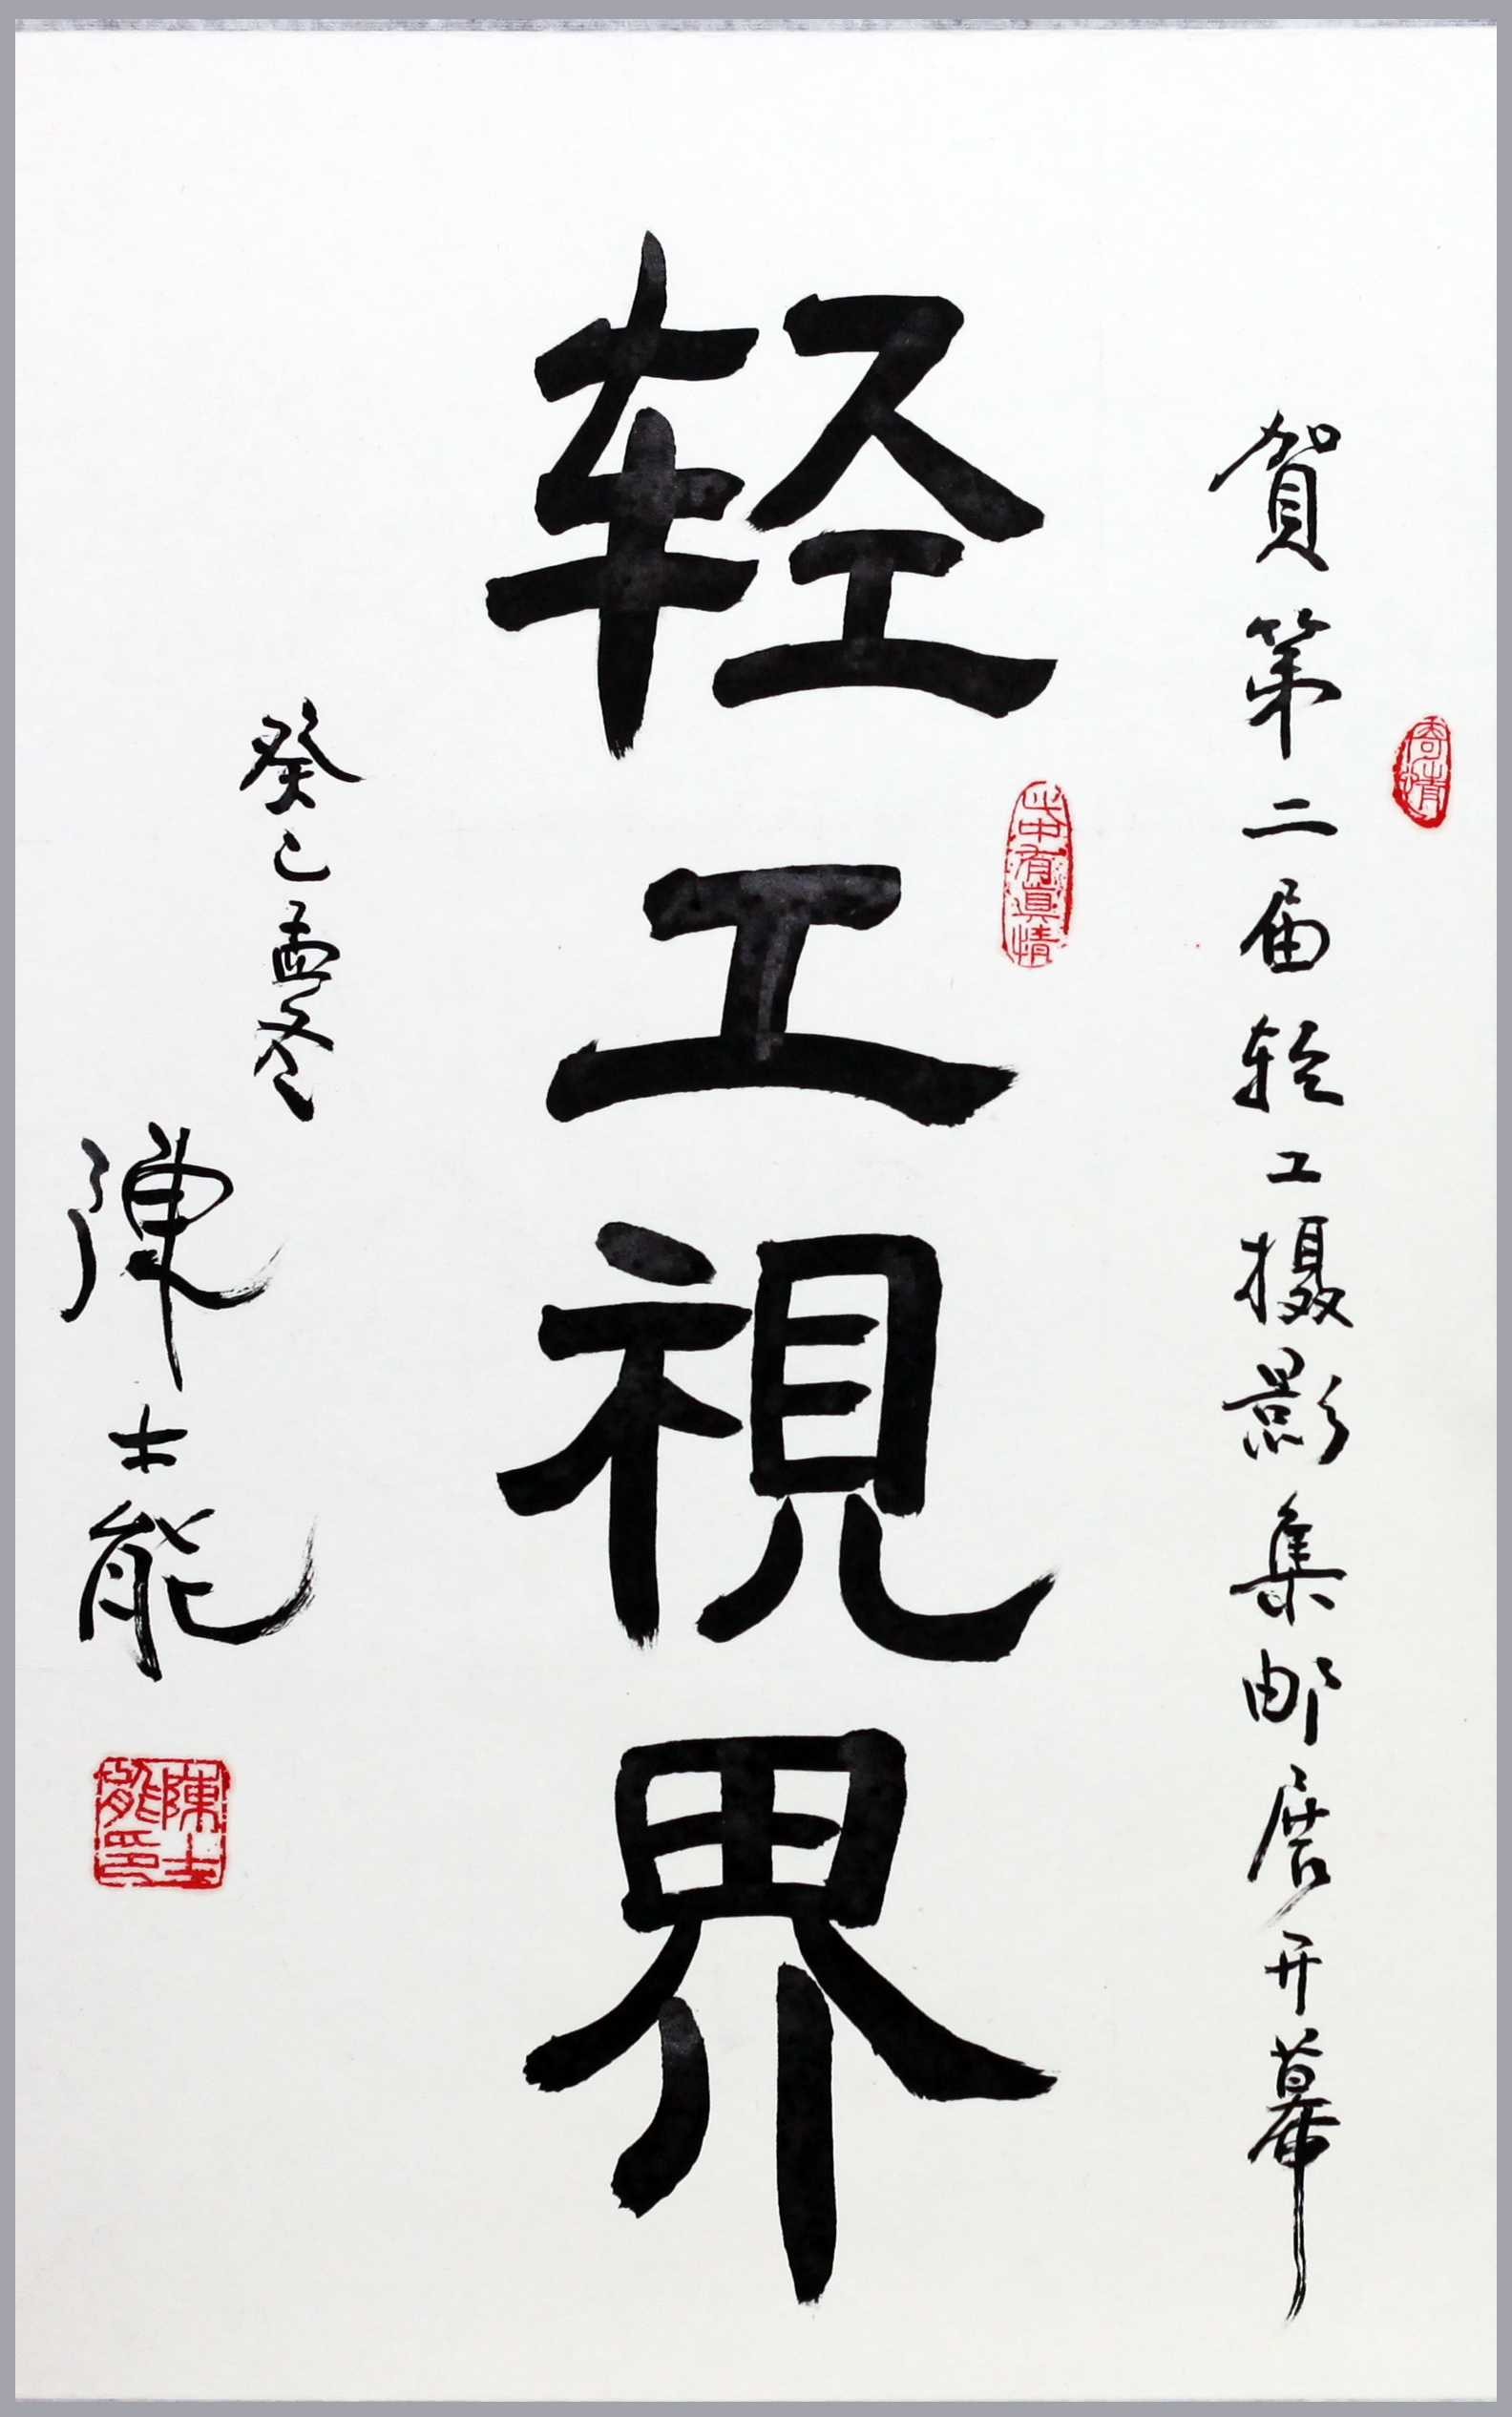 賀第二届轻工摄影集邮展开幕
轻工視界
癸巳孟冬
陳士能
寄情
印中有真情
陳士能印